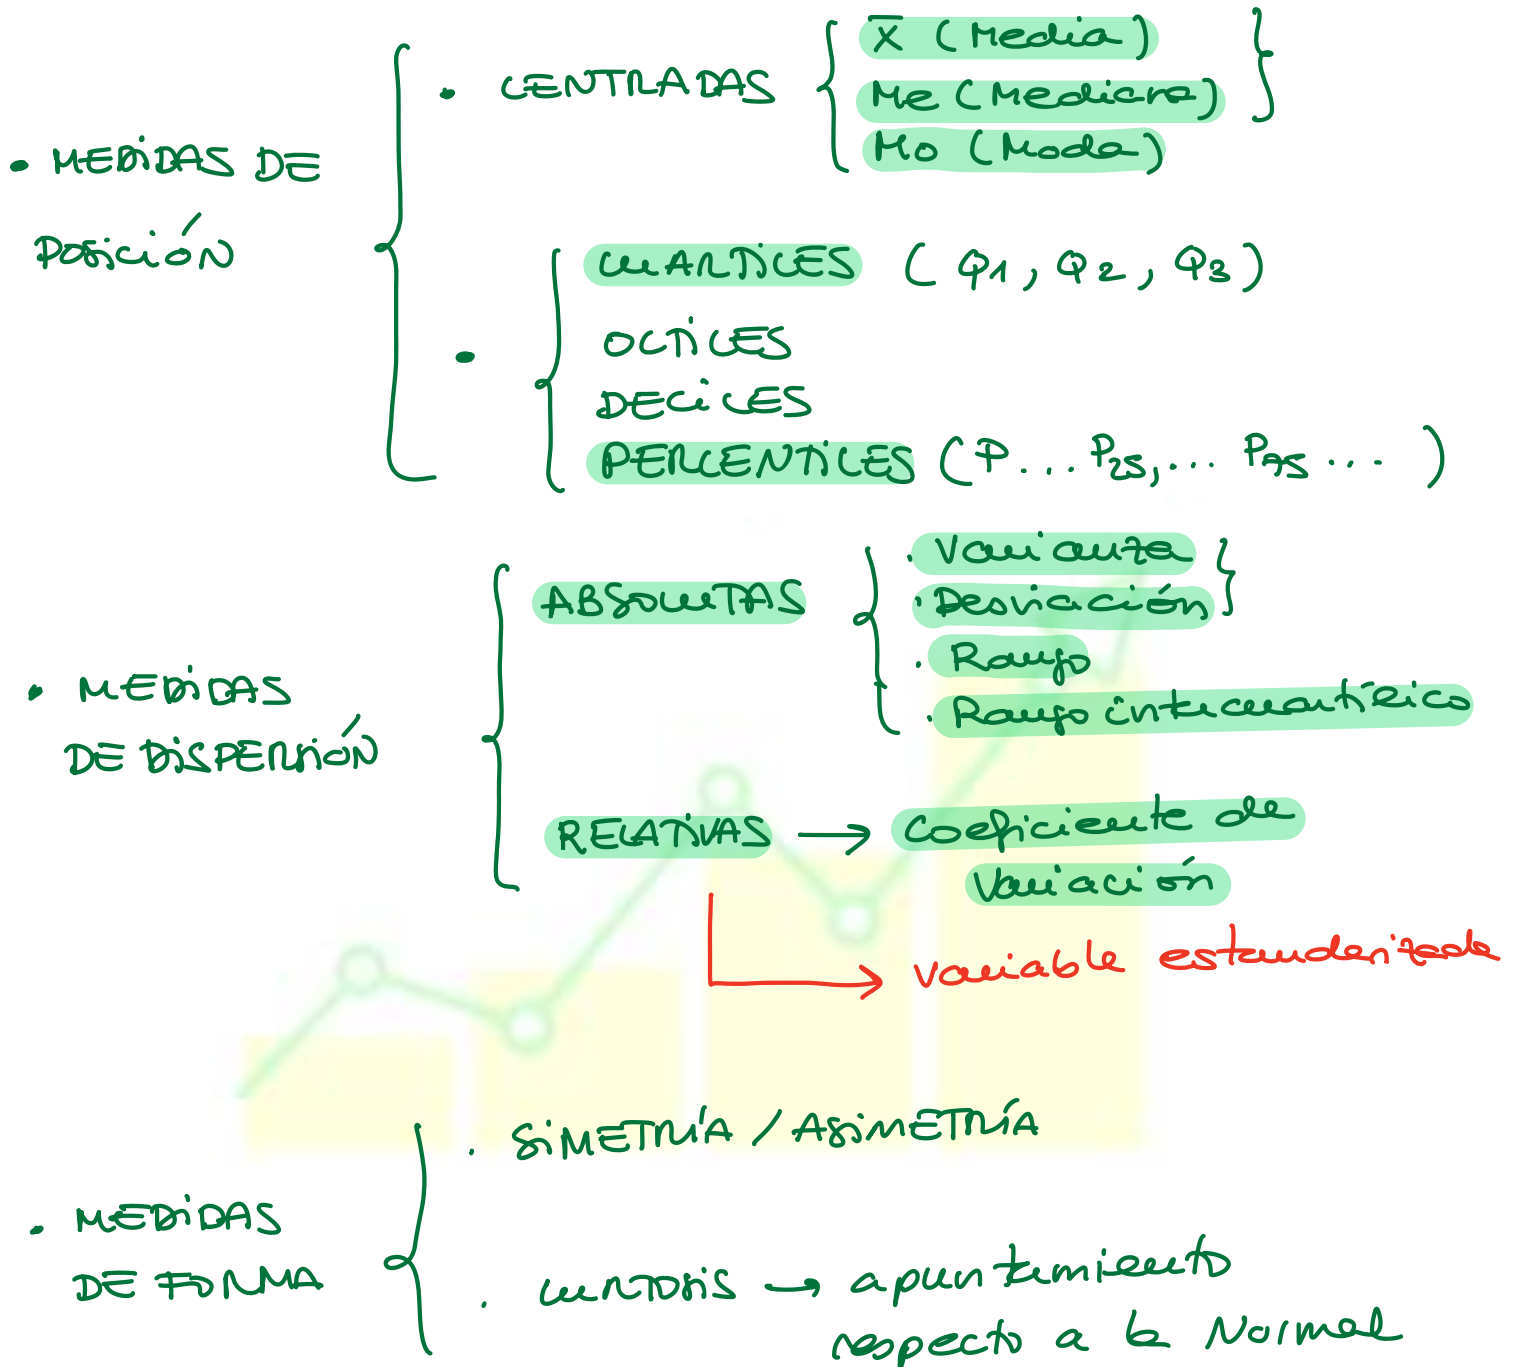 • MEDIDAS DE
POSICIÓN
• CENTRADAS
x̄ (Media)
Me (Mediana)
Mo (Moda)
•
CUARTILES (Q1, Q2, Q3)
OCTILES
DECILES
PERCENTILES (P... P25,... P75 ... )
• MEDIDAS
DE DISPERSIÓN
ABSOLUTAS
. Varianza
. Desviación
. Rango
. Rango intercuartílico
RELATIVAS → Coeficiente de
Variación
→ variable estandarizada
. MEDIDAS
DE FORMA
. SIMETRÍA / ASIMETRÍA
. CURTOSIS → apuntamiento
respecto a la Normal